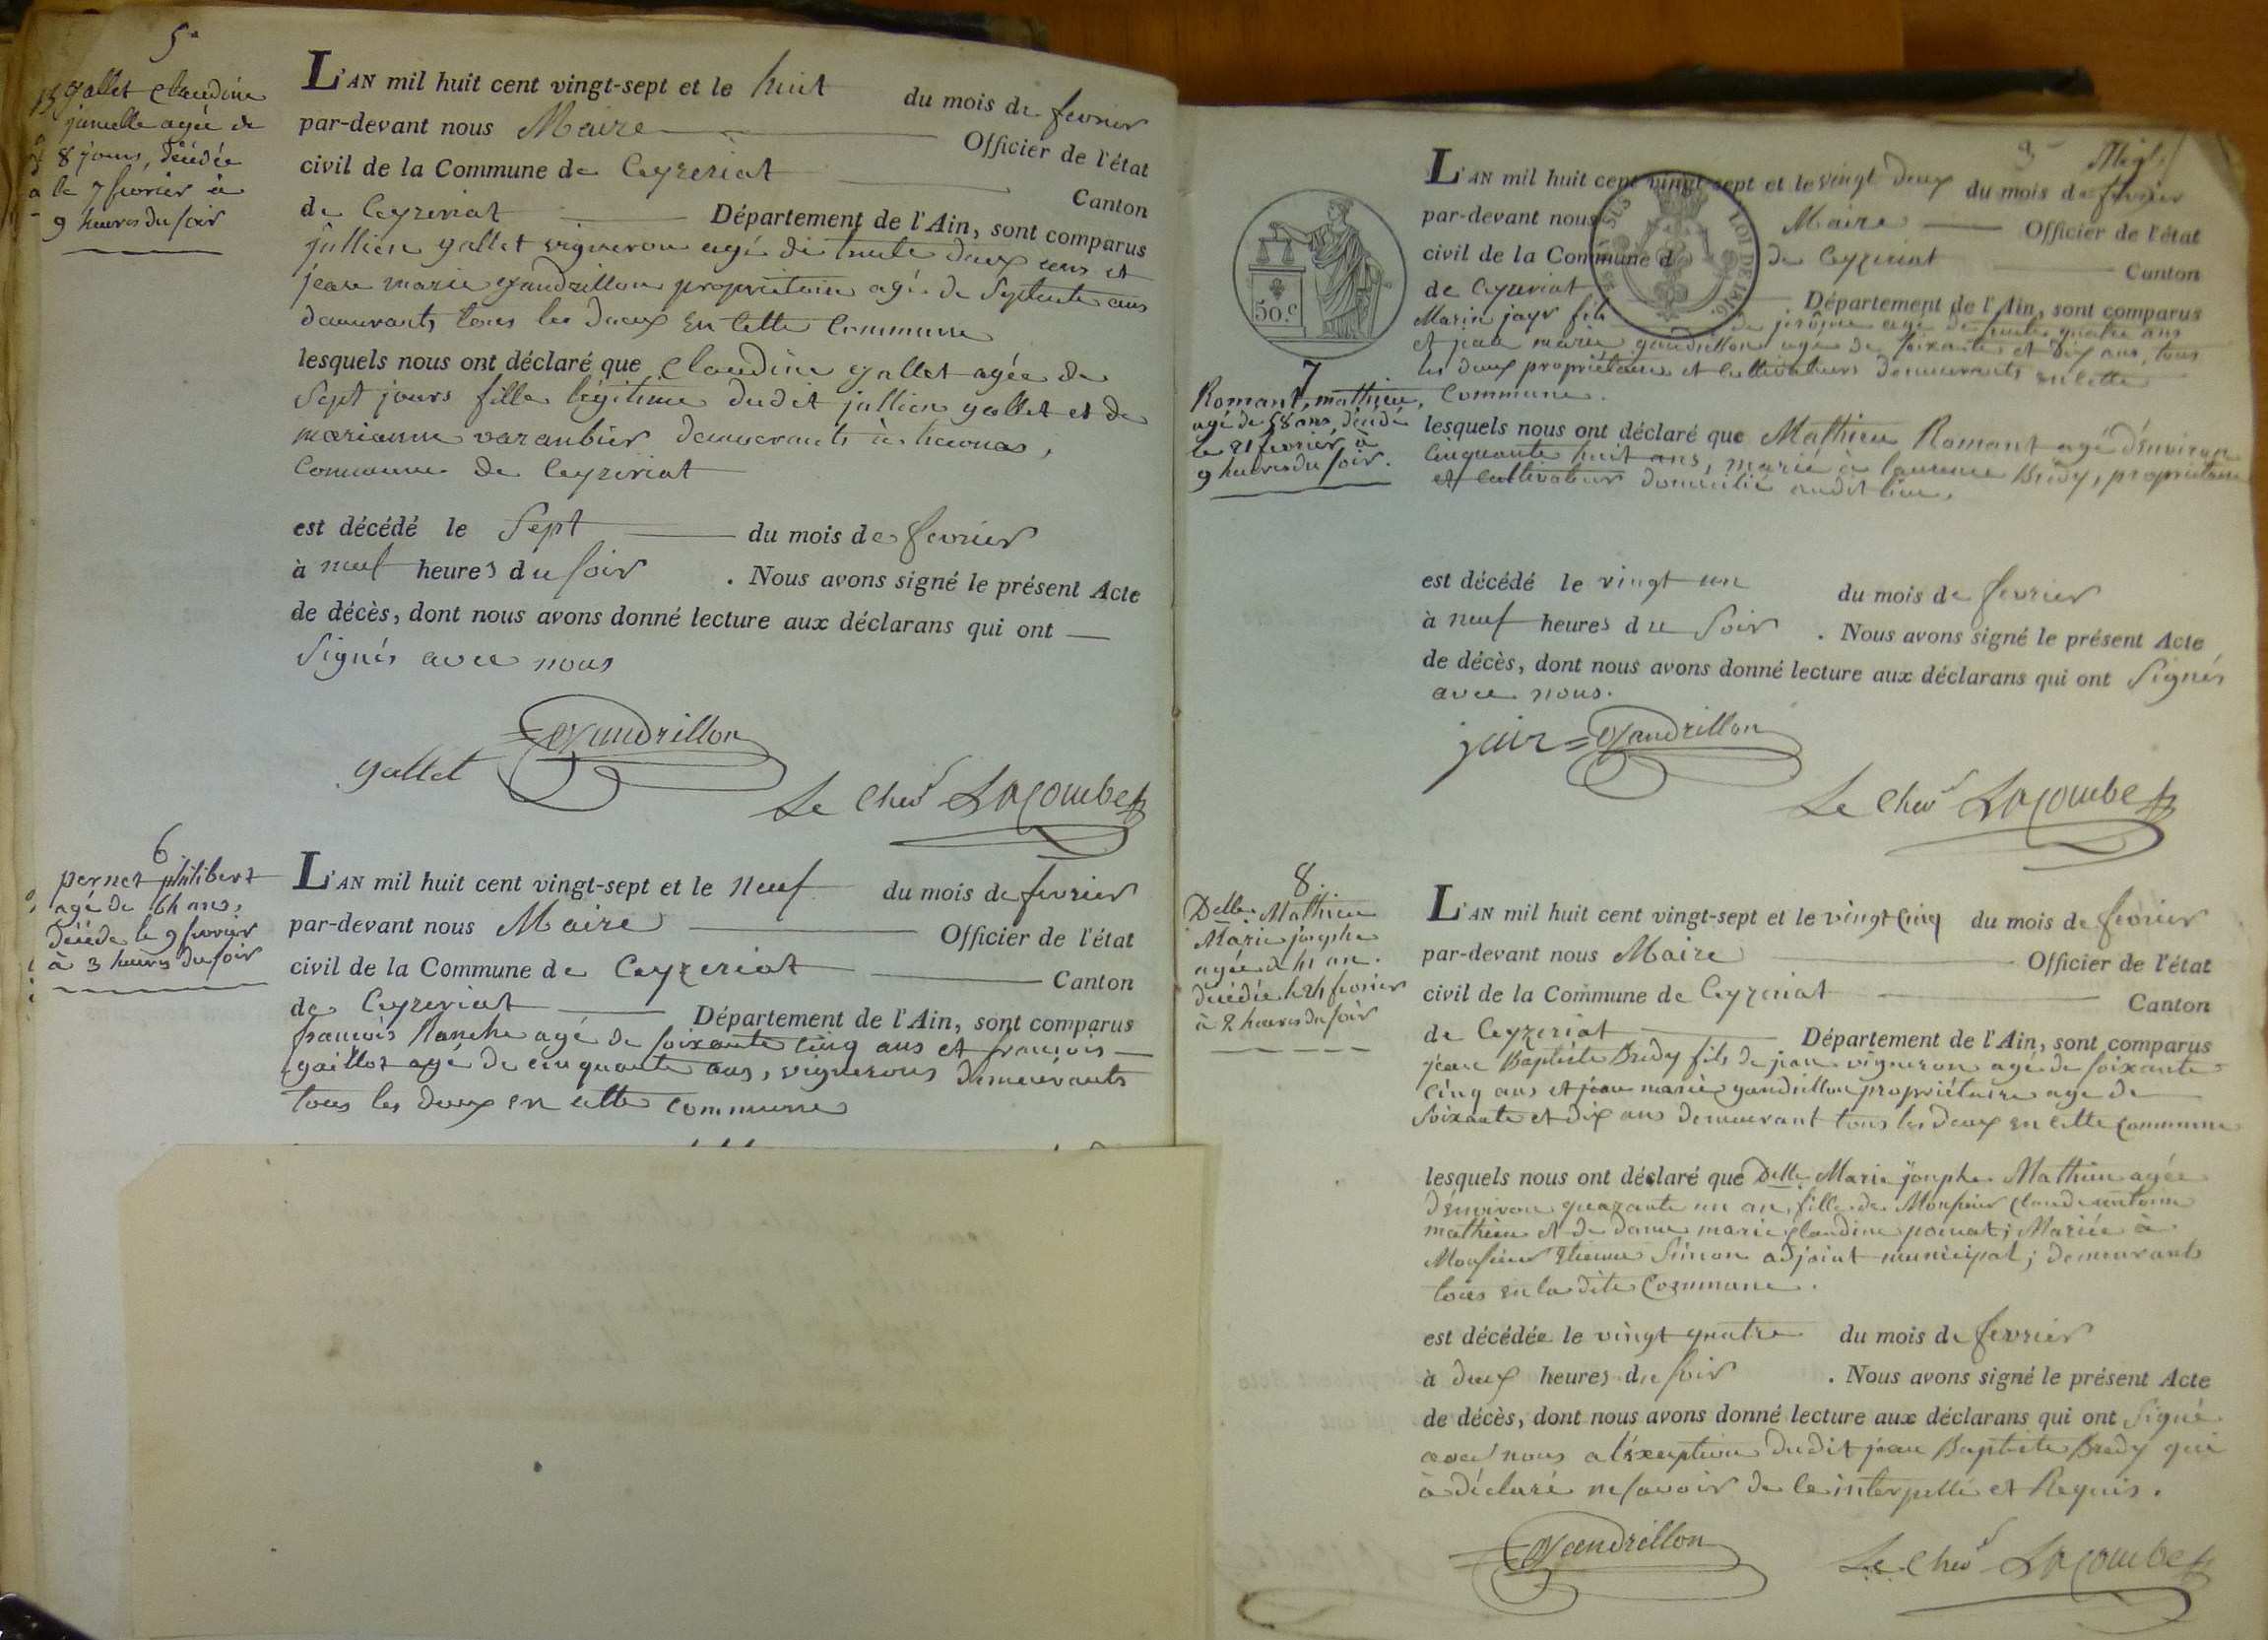 5e
Gallet Claudine
jumelle agée de
8 jours, décédée
le 7 fevrier à
9 heures du soir
L'AN mil huit cent vingt-sept et le huit du mois de fevrier
par-devant nous Maire Officier de l'état
civil de la Commune de Ceyzeriat Canton
de Ceyzeriat Département de l'Ain, sont comparus
jullien gallet vigneron agé de trente deux ans et
jean marie gandrillon propriétaire agé de Septente ans
demeurants tous les deux en cette Commune
lesquels nous ont déclaré que Claudine gallet agée de
Sept jours fille légitime dudit jullien gallet et de
marianne varanbier demeurants à
Commune de Ceyzeriat
est décédé le Sept du mois de fevrier
à neuf heures du soir . Nous avons signé le présent Acte
de décès, dont nous avons donné lecture aux déclarans qui ont
Signés avec nous
gallet Gandrillon
Le Chev.r Lacombe
6
pernet philibert
agé de 64 ans,
décédé le 9 fevrier
à 3 heures du soir
L'AN mil huit cent vingt-sept et le neuf du mois de fevrier
par-devant nous Maire Officier de l'état
civil de la Commune de Ceyzeriat Canton
de Ceyzeriat Département de l'Ain, sont comparus
francois Planche agé de soixante cinq ans et francois
gaillot agé de cinquante ans, vignerons demeurants
tous les deux en cette commune
3e
50.c
LOI DE 1816
L'AN mil huit cent vingt-sept et le vingt deux du mois de fevrier
par-devant nous Maire Officier de l'état
civil de la Commune d de Ceyzeriat Canton
de Ceyzeriat Département de l'Ain, sont comparus
Marin jayr fils de jérôme agé de trente quatre ans
et jean marie gandrillon agé de soixante et dix ans, tous
les deux propriétaires et cultivateurs demeurants en cette
Commune.
7
Romant, mathieu,
agé de 58 ans, décédé
le 21 fevrier à
9 heures du soir.
lesquels nous ont déclaré que Mathieu Romant agé d'environ
Cinquante huit ans, marié à laurence Brédy, propriétaire
et cultivateur domicilié audit lieu,
est décédé le vingt un du mois de fevrier
à neuf heures du Soir . Nous avons signé le présent Acte
de décès, dont nous avons donné lecture aux déclarans qui ont Signés
avec nous.
jair Gandrillon
Le Chev.r Lacombe
8.
Delle. Mathieu
Marie josephe
agée de 41 an.
décédée le 24 fevrier
à 2 heures du soir
L'AN mil huit cent vingt-sept et le vingt Cinq du mois de fevrier
par-devant nous Maire Officier de l'état
civil de la Commune de Ceyzeriat Canton
de Ceyzeriat Département de l'Ain, sont comparus
jéan Baptiste Brédy fils de jean vigneron agé de soixante
Cinq ans et jéan marie gandrillon propriétaire age de
Soixante et dix ans demeurant tous les deux en cette Commune
lesquels nous ont déclaré que Delle. Marie josephe Mathieu agée
d'énviron quarante un an, fille de Monsieur Claude antoine
mathieu et de dame marie Claudine ; Mariée à
Monsieur Etienne Simon adjoint municipal; demeurants
tous en la dite Commune.
est décédée le vingt quatre du mois de fevrier
à deux heures du soir . Nous avons signé le présent Acte
de décès, dont nous avons donné lecture aux déclarans qui ont signé
avec nous a l'éxception dudit jean Baptiste Brédy qui
à déclaré ne savoir de ce interpellé et Requis.
Gandrillon Le Chev.r Lacombe